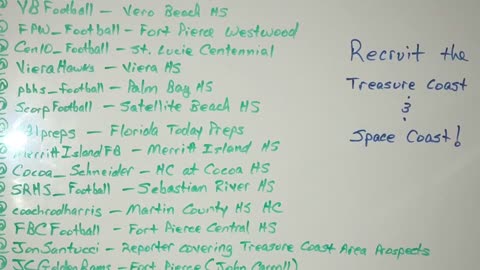 VBFootball – Vero Beach HS
FPW_Football – Fort Pierce Westwood
Cen10_Football – St. Lucie Centennial
VieraHawks – Viera HS
pbhs_football – Palm Bay HS
ScorpFootball – Satellite Beach HS
preps – Florida Today Preps
MerrittIslandFB – Merritt Island HS
Cocoa_Schneider – HC at Cocoa HS
SRHS_Football – Sebastian River HS
coachrodharris – Martin County HS HC
FBCFootball – Fort Pierce Central HS
JonSantucci – Reporter covering Treasure Coast Area Prospects
JCGoldenRams – Fort Pierce (John Carroll)
Recruit the
Treasure Coast
&
Space Coast!